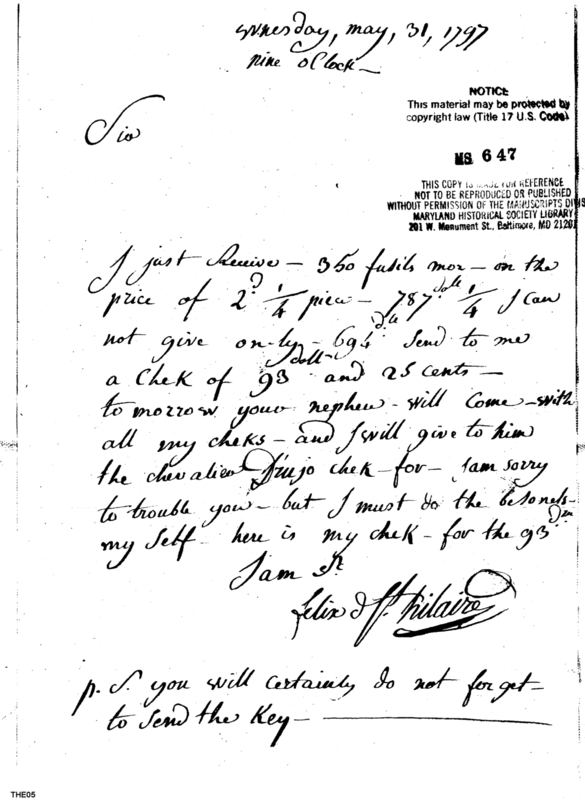 wenesday, may, 31, 1797
nine oClock —
NOTICE
This material may be protected by
copyright law (Title 17 U.S. Code)
Sir
MS 647
THIS COPY IS MADE FOR REFERENCE
NOT TO BE REPRODUCED OR PUBLISHED
WITHOUT PERMISSION OF THE MANUSCRIPTS DIVIS
MARYLAND HISTORICAL SOCIETY LIBRARY
201 W. Monument St., Baltimore, MD 21201
I just Receive — 350 fusils mor — on the
price of 2 D 1/4 piece — 787 doll 1/4 I Can
not give on-ly — 694 Send to me
a Chek of 93 doll and 25 cents —
to morrow your nephew - will Come - with
all my cheks — and I will give to him
the chevalier D'irujo chek — for — Iam sorry
to trouble you — but I must do the besoness
my Self — here is my chek — for the 93
Iam St
felix d St. hilaire
p. S. you will certainly do not forget —
to Send the Key —
THE05